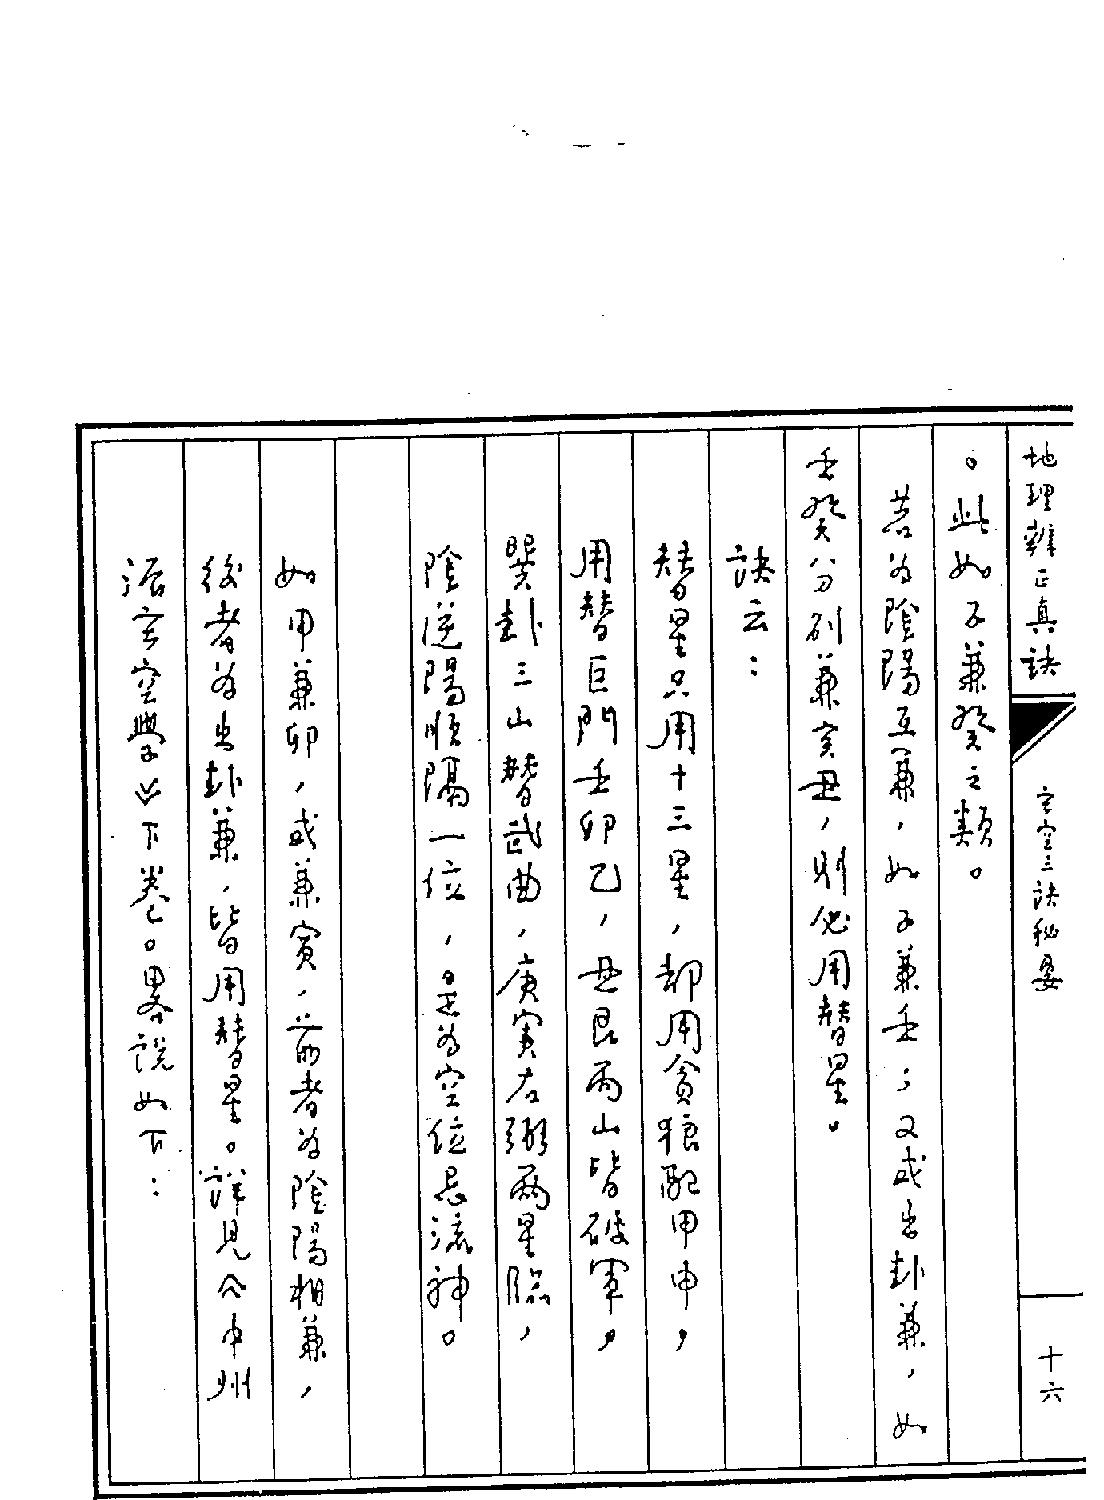 地理辨正真訣
玄空三訣秘要
十六
。此如子兼癸之類。
若為陰陽互兼，如子兼壬；又或出卦兼，如
壬癸分別兼亥丑，則必用替星。
訣云：
替星只用十三星，都用貪狼配甲申，
用替巨門壬卯乙，丑艮丙山皆破軍。
巽卦三山替武曲，庚寅右弼兩星臨，
陰逆陽順隔一位，是為空位忌流神。
如甲兼卯，或兼寅，前者為陰陽相兼，
後者為出卦兼，皆用替星。詳見《中州
派玄空學》下卷。畧説如下：